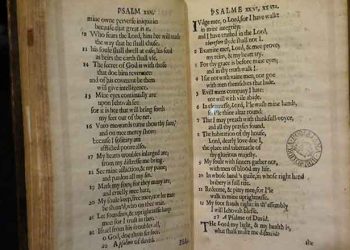 PSALM XXV.
mine owne perverse iniquitie
because that great it is.
12 Who fears the Lord, him hee will teach
the way that he shall chuse.
13 his soule shall dwell at ease, his seed
as heirs the earth shall use.
14 The secret of God is with those
that doe him reverence:
and of his covenant he them
will give intelligence.
15 Mine eyes continually are
upon Jehovah set:
for it is hee that will bring forth
my feet out of the net.
16 Unto me-wards turne thou thy face,
and on mee mercy show:
because I solitary am
afflicted poore also.
17 My hearts troubles inlarged are,
from my distresse me bring.
18 See mine affliction, & my paine,
and pardon all my sin.
19 Mark my foes; for they many are,
and cruelly mee hate.
20 My soule keep, free mee; nor let me
be sham'd, who on thee wait.
21
22 Israel from his troubles all,
O God, doe thou set free.
A psalme of david.
PSALME XXVI, XXVII.
Judge mee, o Lord, for I have walkt
in mine integrity:
and I have trusted in the Lord,
therefore slyde shall not I.
2 Examine mee, Lord, & mee prove;
my reins, & my heart try.
3 For thy grace is before mine eyes;
and in thy truth walk I.
4 I sat not with vaine men, nor goe
with men themselves that hide.
5 Evill mens company I hate:
nor will with vile abide.
6 In cleannesse, Lord, I'le wash mine hands,
7
and all thy prayses sound.
8 The habitation of thy house,
Lord, dearly love doe I,
the place and tabernacle of
thy glorious majesty.
9 My soule with sinners gather not,
with men of blood my life.
10 In whose hand's guile, in whose right hand
bribery is full rife.
11 Redeeme, & pitty mee; for I'le
walk in mine uprightnesse.
12 My foot stands right: in th' assembly
I will Jehovah blesse.
A Psalme of David.
The Lord my light, & my health is,